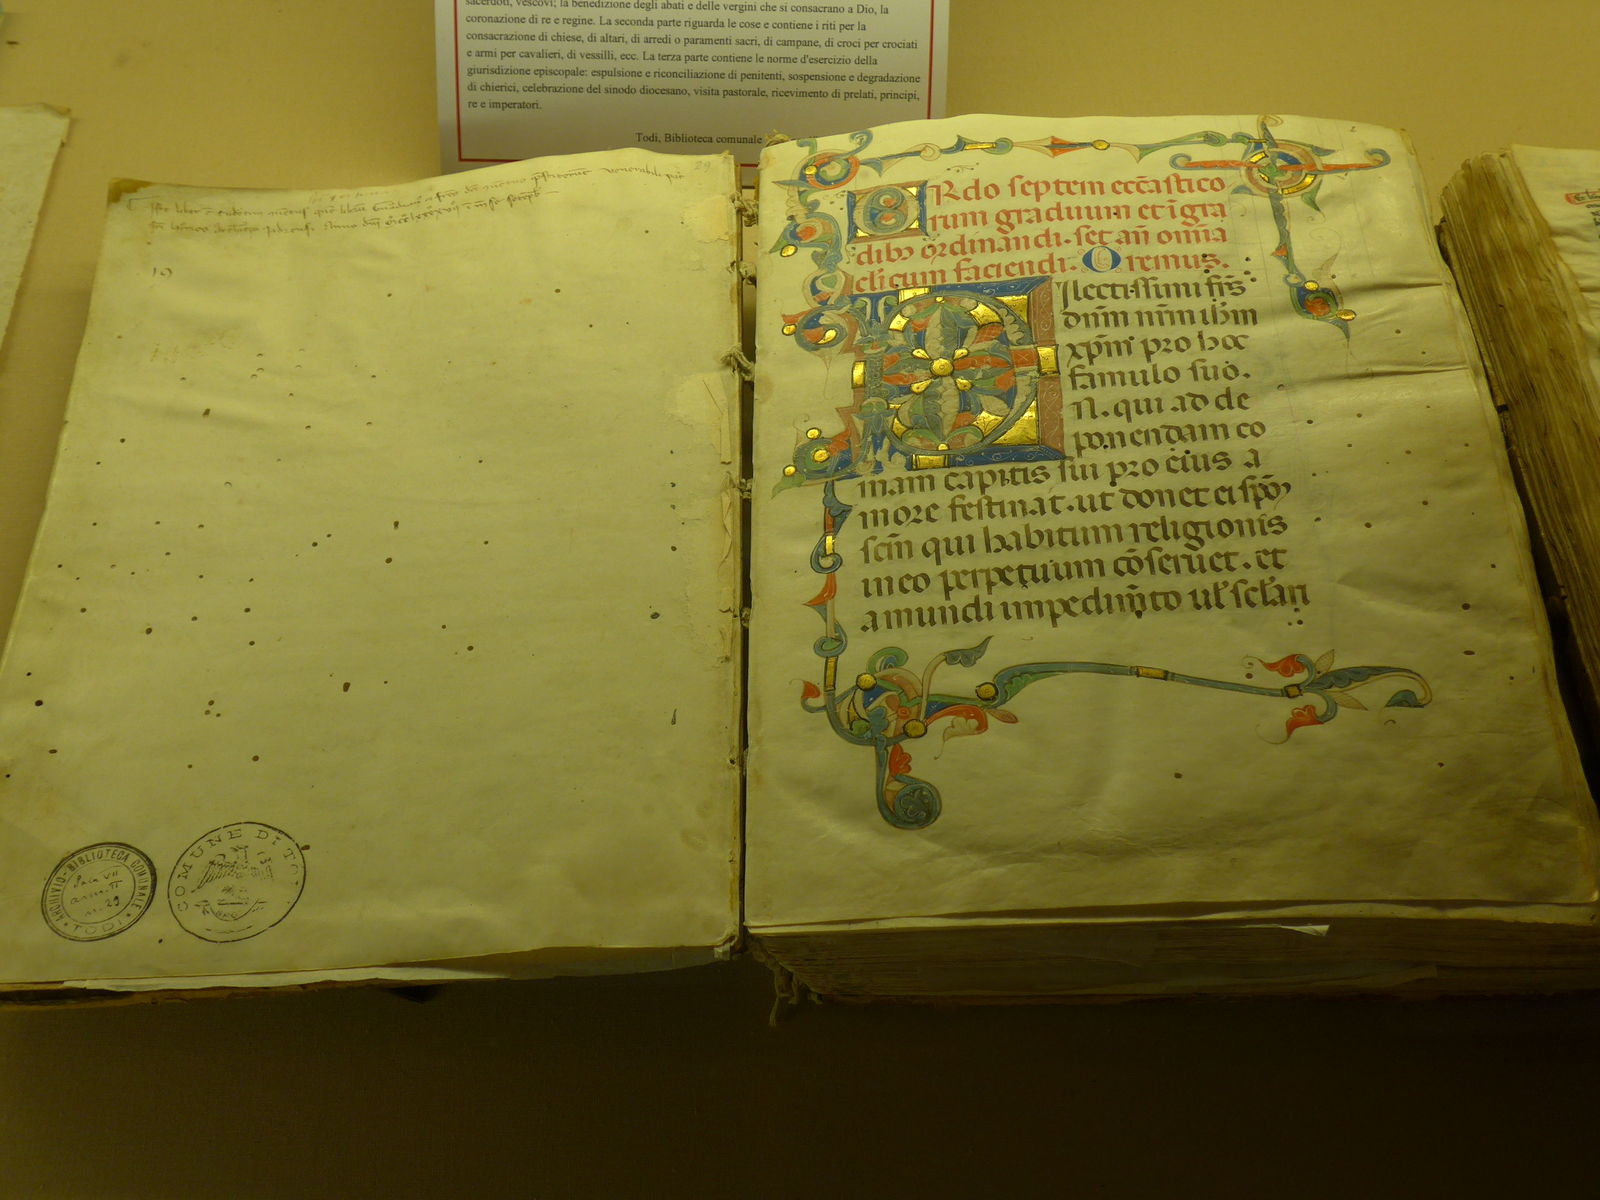 sacerdoti, vescovi; la benedizione degli abati e delle vergini che si consacrano a Dio, la
coronazione di re e regine. La seconda parte riguarda le cose e contiene i riti per la
consacrazione di chiese, di altari, di arredi o paramenti sacri, di campane, di croci per crociati
e armi per cavalieri, di vessilli, ecc. La terza parte contiene le norme d'esercizio della
giurisdizione episcopale: espulsione e riconciliazione di penitenti, sospensione e degradazione
di chierici, celebrazione del sinodo diocesano, visita pastorale, ricevimento di prelati, principi,
re e imperatori.
Todi, Biblioteca comunale
29
Iste liber
19
ARCHIVIO-BIBLIOTECA COMUNALE
TODI
COMUNE DI TO
2
ORdo septem eccastico
rum graduum et i gra
dibꝫ ordinandi. set an omia
clicum faciendi. Oremus.
Dilectissimi frs
dnm nrm ihm
xpm pro hoc
famulo suo.
N. qui ad de
ponendam co
mam capitis sui pro eius a
more festinat. ut donet ei spm
scm qui habitum religionis
in eo perpetuum coseruet. et
a mundi impedimto ul' sclari